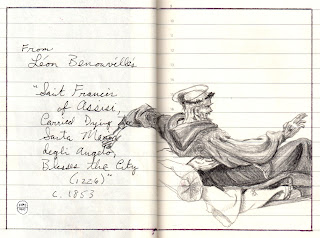 From
Léon Benouville's
"Sait Francis
of Assisi,
Carried Dying
Santa Maria
degli Angeloi,
Blesses the City
(1226)"
c. 1853